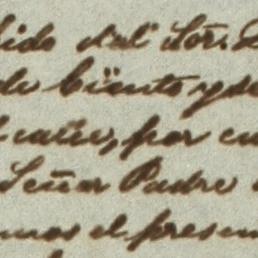 lido del Sor.
de biento y de
calle, por cu
Señor Padre
mos el presen